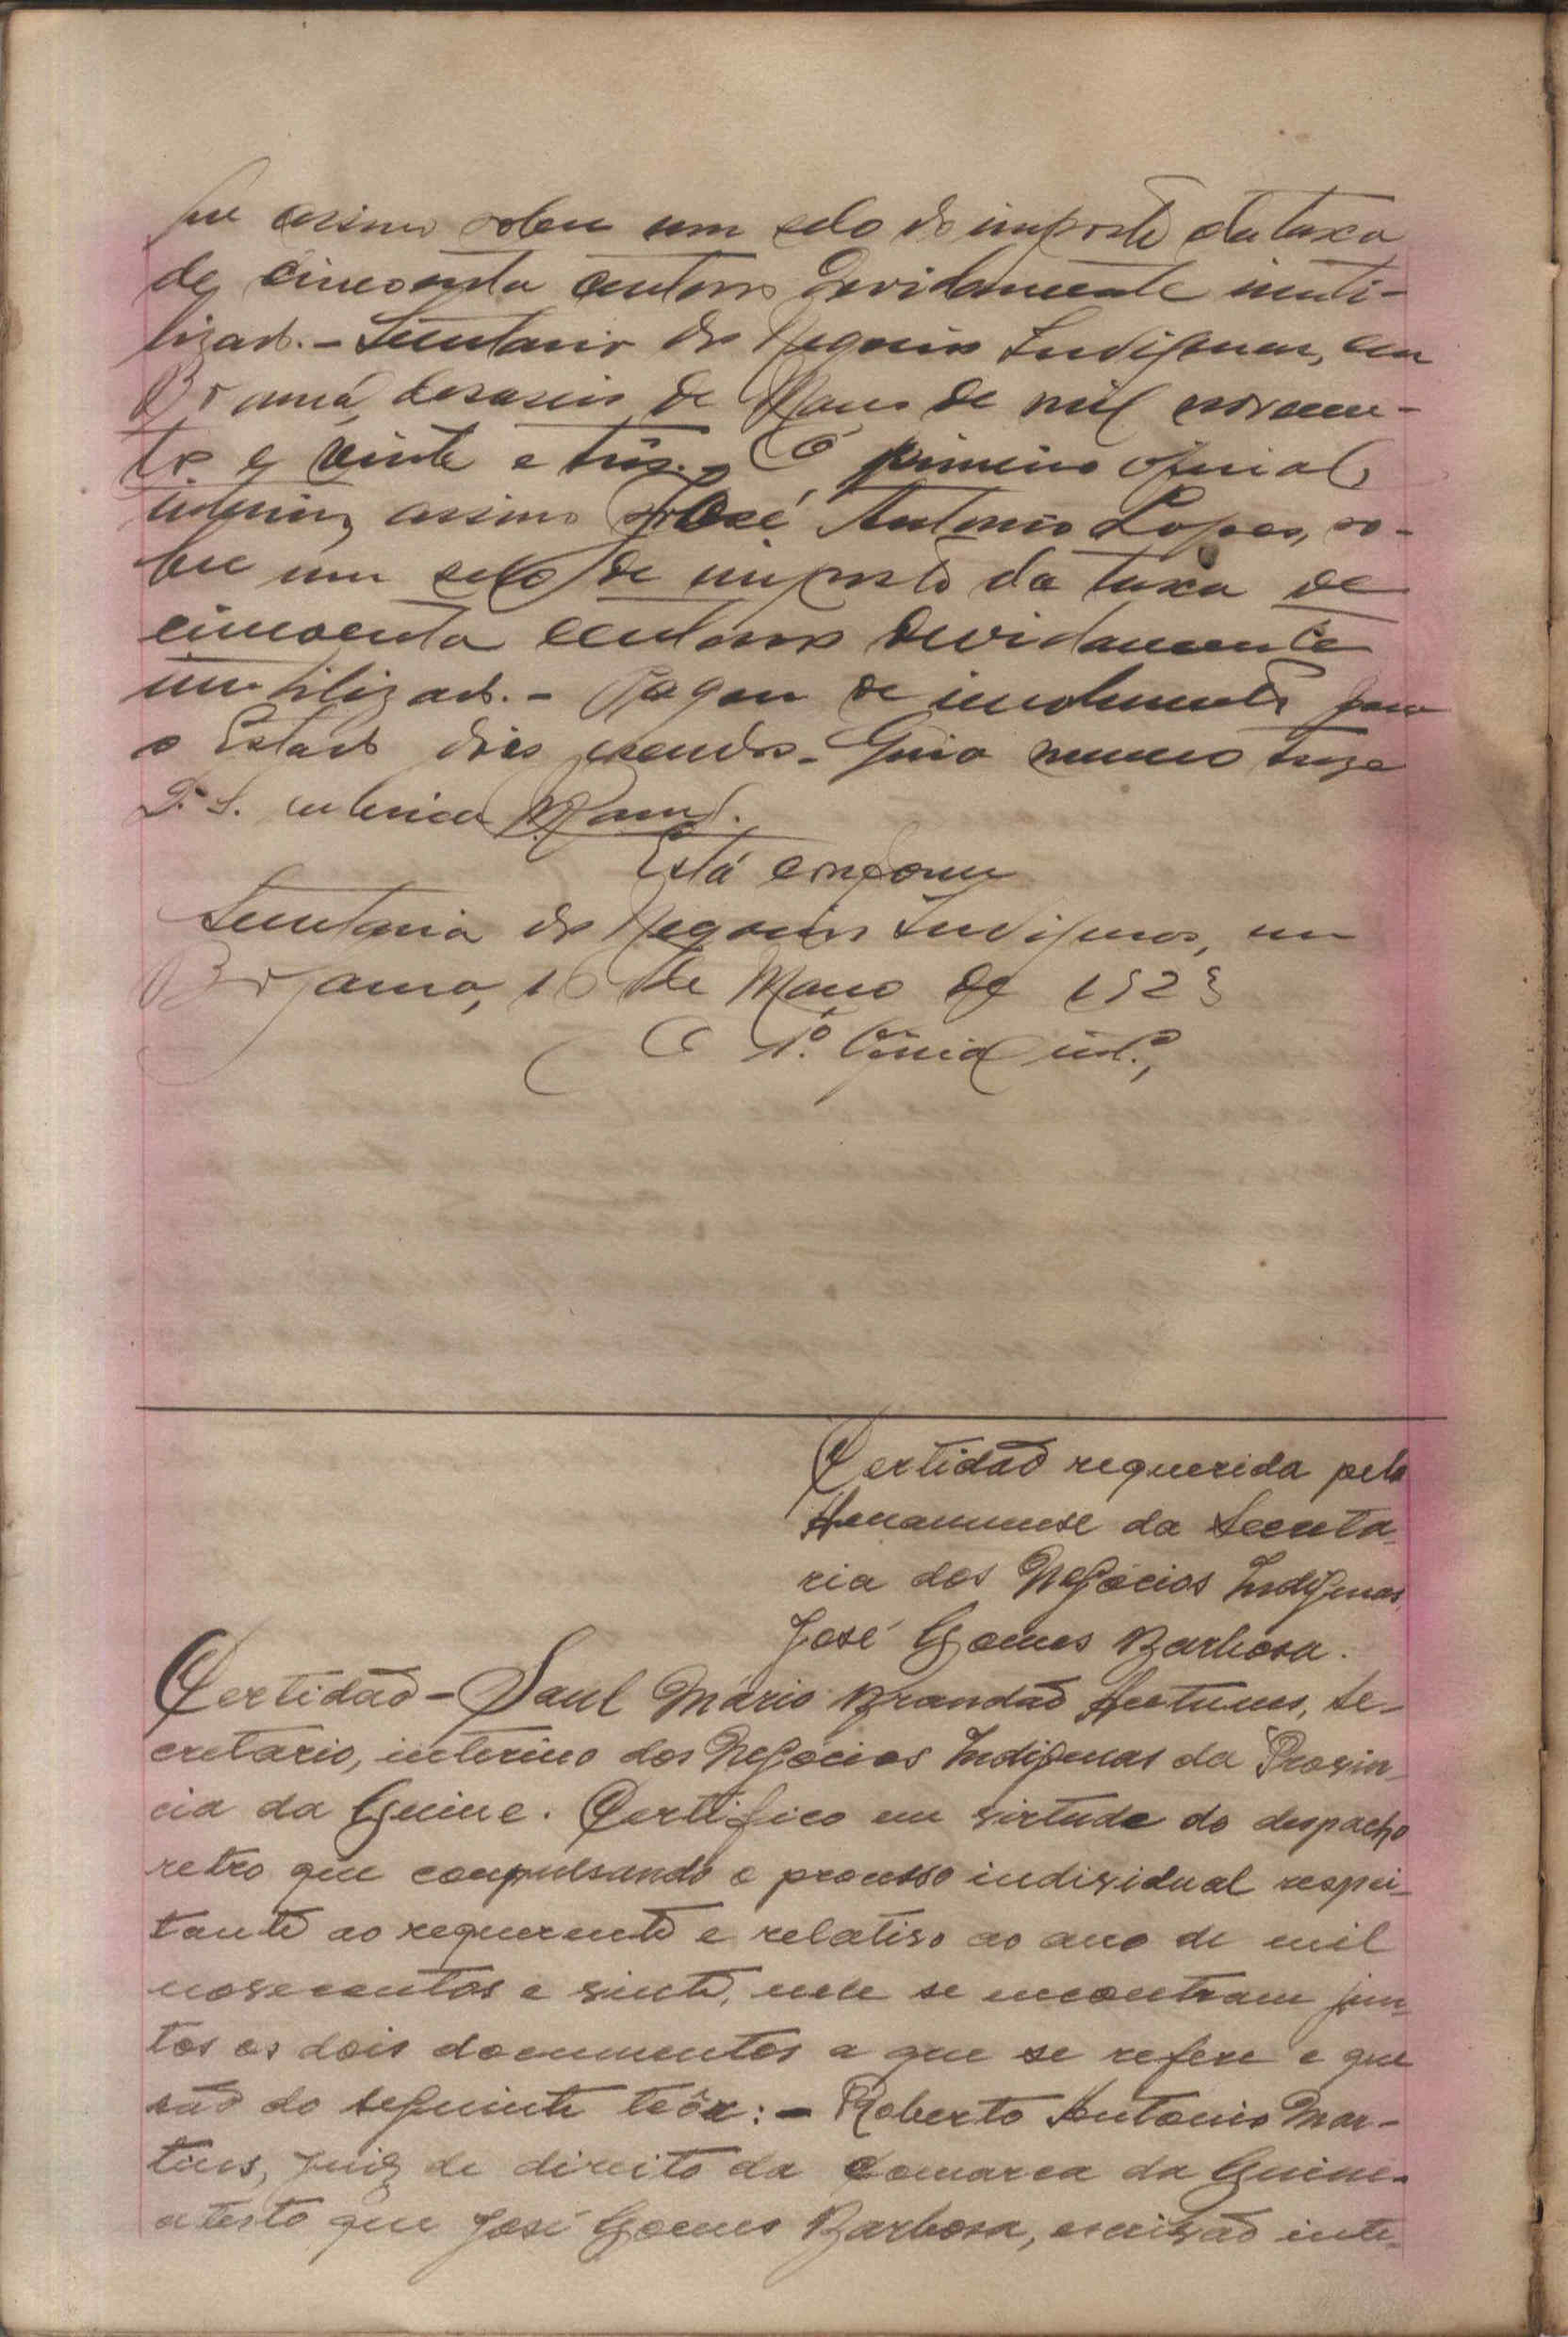 que assino sobre um selo do imposto da taxa
de cincoenta centavos devidamente inuti-
lizado. - Secretaria dos Negocios Indigenas, em
Bolama, desaseis de Março de mil novecen-
tos e vinte e três. - O primeiro oficial,
interino, assino José Antonio Lopes, so-
bre um selo de imposto da taxa de
cincoenta centavos devidamente
inutilizado. - Pagou de emolumentos para
o Estado dois escudos. Guia numero treze
rubrica
Está conforme
Secretaria dos Negocios Indigenas, em
Bolama, 16 de Março de 1923
O 1.º Oficial int.º,
Certidão requerida pelo
Amanuense da Secreta-
ria dos Negócios Indigenas,
José Gomes Barbosa.
Certidão - Saul Mário Brandão Antunes, Se-
cretario, interino dos Negócios Indigenas da Provin-
cia da Guine. Certifico em virtude do despacho
retro que compulsando o processo individual respei-
tante ao requerente e relativo ao ano de mil
novecentos e vinte, nele se encontram jun-
tos os dois documentos a que se refere e que
são do seguinte teôr: - Roberto Antonio Mar-
tins, Juiz de direito da Comarca da Guine.
atesto que José Gomes Barbosa, escrivão inte-